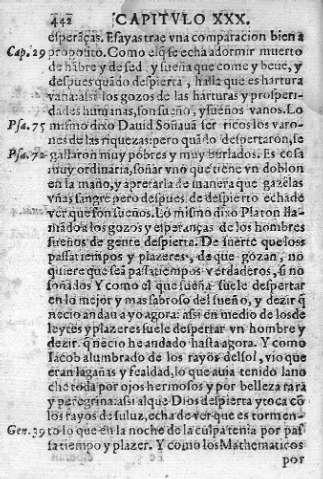 442 CAPITVLO XXX.
esperāças. Esayas trae vna comparacion bien a
Cap. 29 proposito. Como elq̄ se echa a dormir muerto
de hābre y de sed, y sueña que come y beue, y
despues quādo despierta, halla que es hartura
vana: assi los gozos de las harturas y prosperi-
dades humanas, son sueño, y sueños vanos. Lo
Psa. 75 mismo dixo Dauid Soñauā ser ricos los varo-
nes de las riquezas: pero quādo despertaron, se
Psa. 72 hallaron muy pobres y muy burlados. Es cosa
muy ordinaria, soñar vno que tiene vn doblon
en la mano, y apretarla de manera que
vñas sangre pero despues de despierto echa de
ver que son sueños. Lo mismo dixo Platon lla-
mādo a los gozos y esperanças de los hombres
sueños de gente despierta. De suerte que los
passatiempos y plazeres, de que gozan, no
quiere que seā passatiempos verdaderos, si no
soñados Y como el que sueña suele despertar
en lo mejor y mas sabroso del sueño, y dezir q̄
necio andau a yo agora: assi en medio de los de
leytes y plazeres suele despertar vn hombre y
dezir. q̄ necio he andado hasta agora. Y como
Iacob alumbrado de los rayos del sol, vio que
eran lagañas y fealdad, lo que auia tenido la no
che toda por ojos hermosos y por belleza rara
y peregrina: assi al que Dios despierta y toca cō
los rayos de su luz, echa de ver que es tormen-
Gen. 39 to lo que en la noche de la culpa tenia por pas
satiempo y plazer. Y como los Mathematicos
por